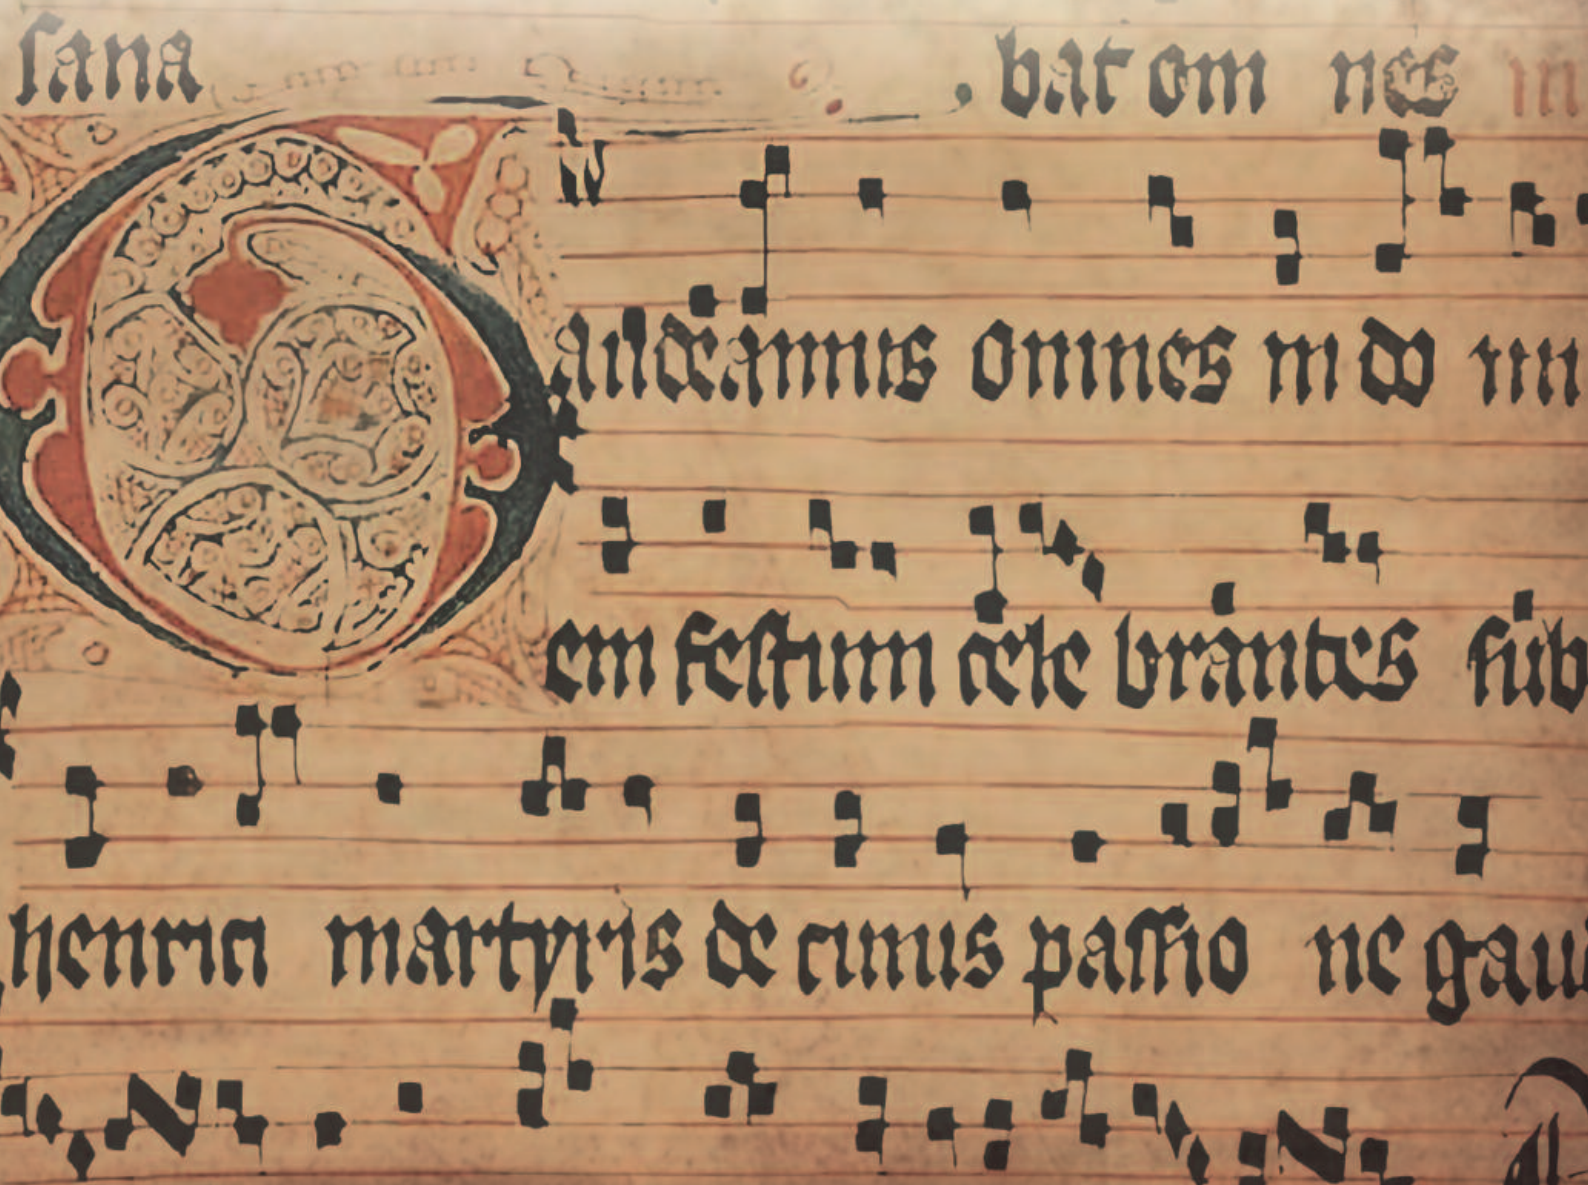 sana bat om nes in
Gaudeamus omnes in do mi
em festum cele brantes sub
henrici martyris de cuius passio ne gau